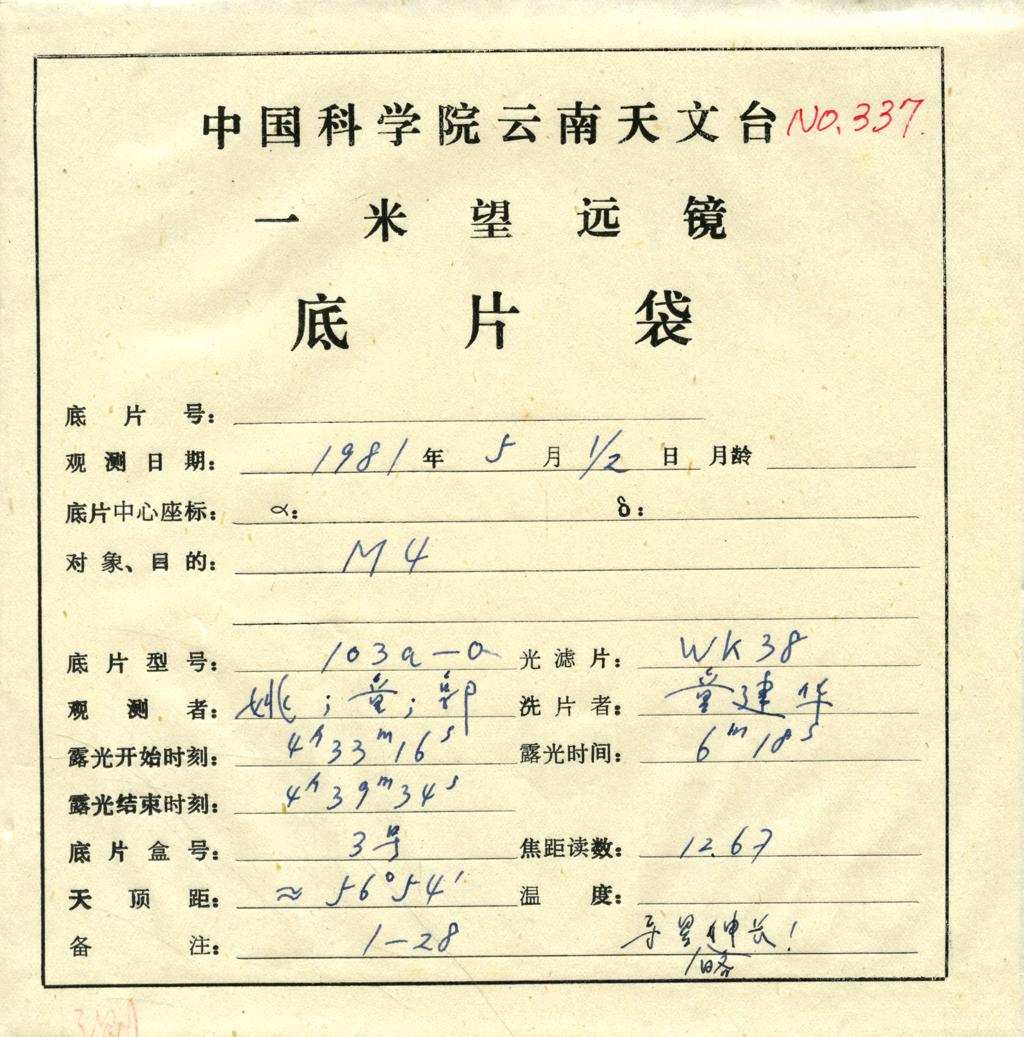 中国科学院云南天文台 NO.337.
一米望远镜
底片袋
底片号：
观测日期： 1981年 5月 1/2日 月龄
底片中心座标： α： δ：
对象、目的： M4
底片型号： 103a-O 光滤片： WK38
观测者： 姚；童；郭 洗片者： 童建华
露光开始时刻： 4h33m16s 露光时间： 6m18s
露光结束时刻： 4h39m34s
底片盒号： 3号 焦距读数： 12.67
天顶距： ≈56°54′ 温度：
备注： 1-28 导星伸长！
略